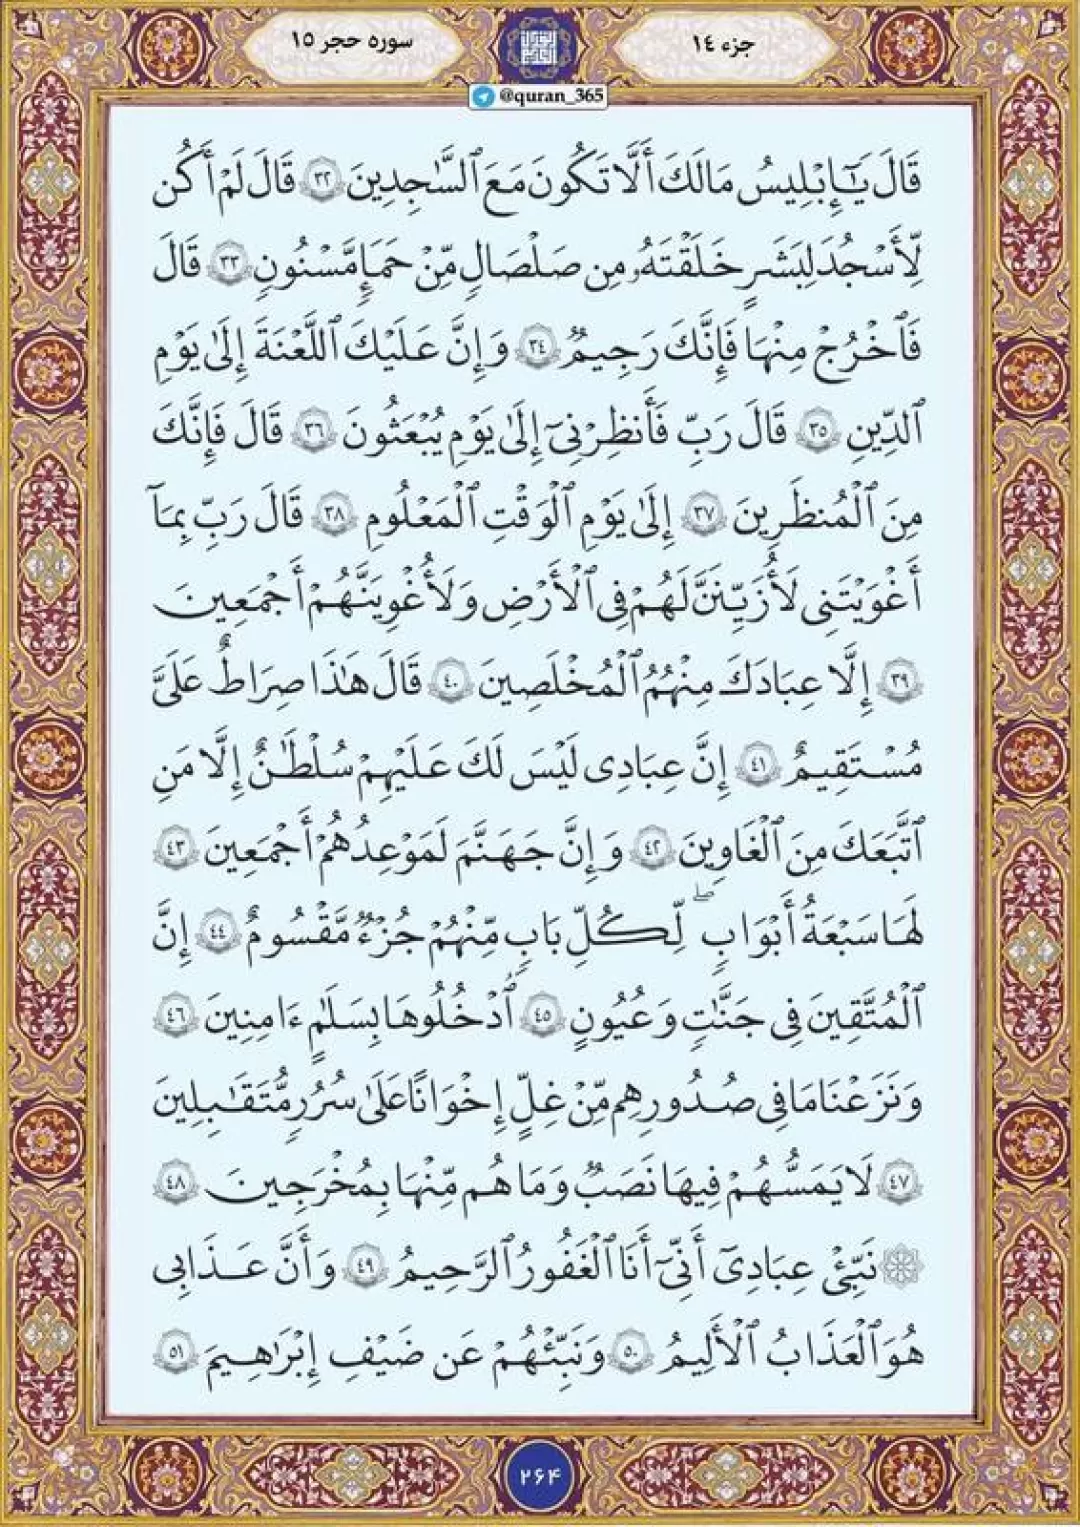 سوره حجر ١٥
جزء ١٤
@quran_365
قَالَ يَٰٓإِبْلِيسُ مَالَكَ أَلَّا تَكُونَ مَعَ ٱلسَّٰجِدِينَ ٣٢ قَالَ لَمْ أَكُن
لِّأَسْجُدَ لِبَشَرٍ خَلَقْتَهُۥ مِن صَلْصَالٍ مِّنْ حَمَإٍ مَّسْنُونٍ ٣٣ قَالَ
فَٱخْرُجْ مِنْهَا فَإِنَّكَ رَجِيمٌ ٣٤ وَإِنَّ عَلَيْكَ ٱللَّعْنَةَ إِلَىٰ يَوْمِ
ٱلدِّينِ ٣٥ قَالَ رَبِّ فَأَنظِرْنِىٓ إِلَىٰ يَوْمِ يُبْعَثُونَ ٣٦ قَالَ فَإِنَّكَ
مِنَ ٱلْمُنظَرِينَ ٣٧ إِلَىٰ يَوْمِ ٱلْوَقْتِ ٱلْمَعْلُومِ ٣٨ قَالَ رَبِّ بِمَآ
أَغْوَيْتَنِى لَأُزَيِّنَنَّ لَهُمْ فِى ٱلْأَرْضِ وَلَأُغْوِيَنَّهُمْ أَجْمَعِينَ
٣٩ إِلَّا عِبَادَكَ مِنْهُمُ ٱلْمُخْلَصِينَ ٤٠ قَالَ هَٰذَا صِرَاطٌ عَلَىَّ
مُسْتَقِيمٌ ٤١ إِنَّ عِبَادِى لَيْسَ لَكَ عَلَيْهِمْ سُلْطَٰنٌ إِلَّا مَنِ
ٱتَّبَعَكَ مِنَ ٱلْغَاوِينَ ٤٢ وَإِنَّ جَهَنَّمَ لَمَوْعِدُهُمْ أَجْمَعِينَ ٤٣
لَهَا سَبْعَةُ أَبْوَابٍۖ لِّكُلِّ بَابٍ مِّنْهُمْ جُزْءٌ مَّقْسُومٌ ٤٤ إِنَّ
ٱلْمُتَّقِينَ فِى جَنَّٰتٍ وَعُيُونٍ ٤٥ ٱدْخُلُوهَا بِسَلَٰمٍ ءَامِنِينَ ٤٦
وَنَزَعْنَا مَا فِى صُدُورِهِم مِّنْ غِلٍّ إِخْوَانًا عَلَىٰ سُرُرٍ مُّتَقَٰبِلِينَ
٤٧ لَا يَمَسُّهُمْ فِيهَا نَصَبٌ وَمَا هُم مِّنْهَا بِمُخْرَجِينَ ٤٨
۞ نَبِّئْ عِبَادِىٓ أَنِّىٓ أَنَا ٱلْغَفُورُ ٱلرَّحِيمُ ٤٩ وَأَنَّ عَذَابِى
هُوَ ٱلْعَذَابُ ٱلْأَلِيمُ ٥٠ وَنَبِّئْهُمْ عَن ضَيْفِ إِبْرَٰهِيمَ ٥١
۲۶۴